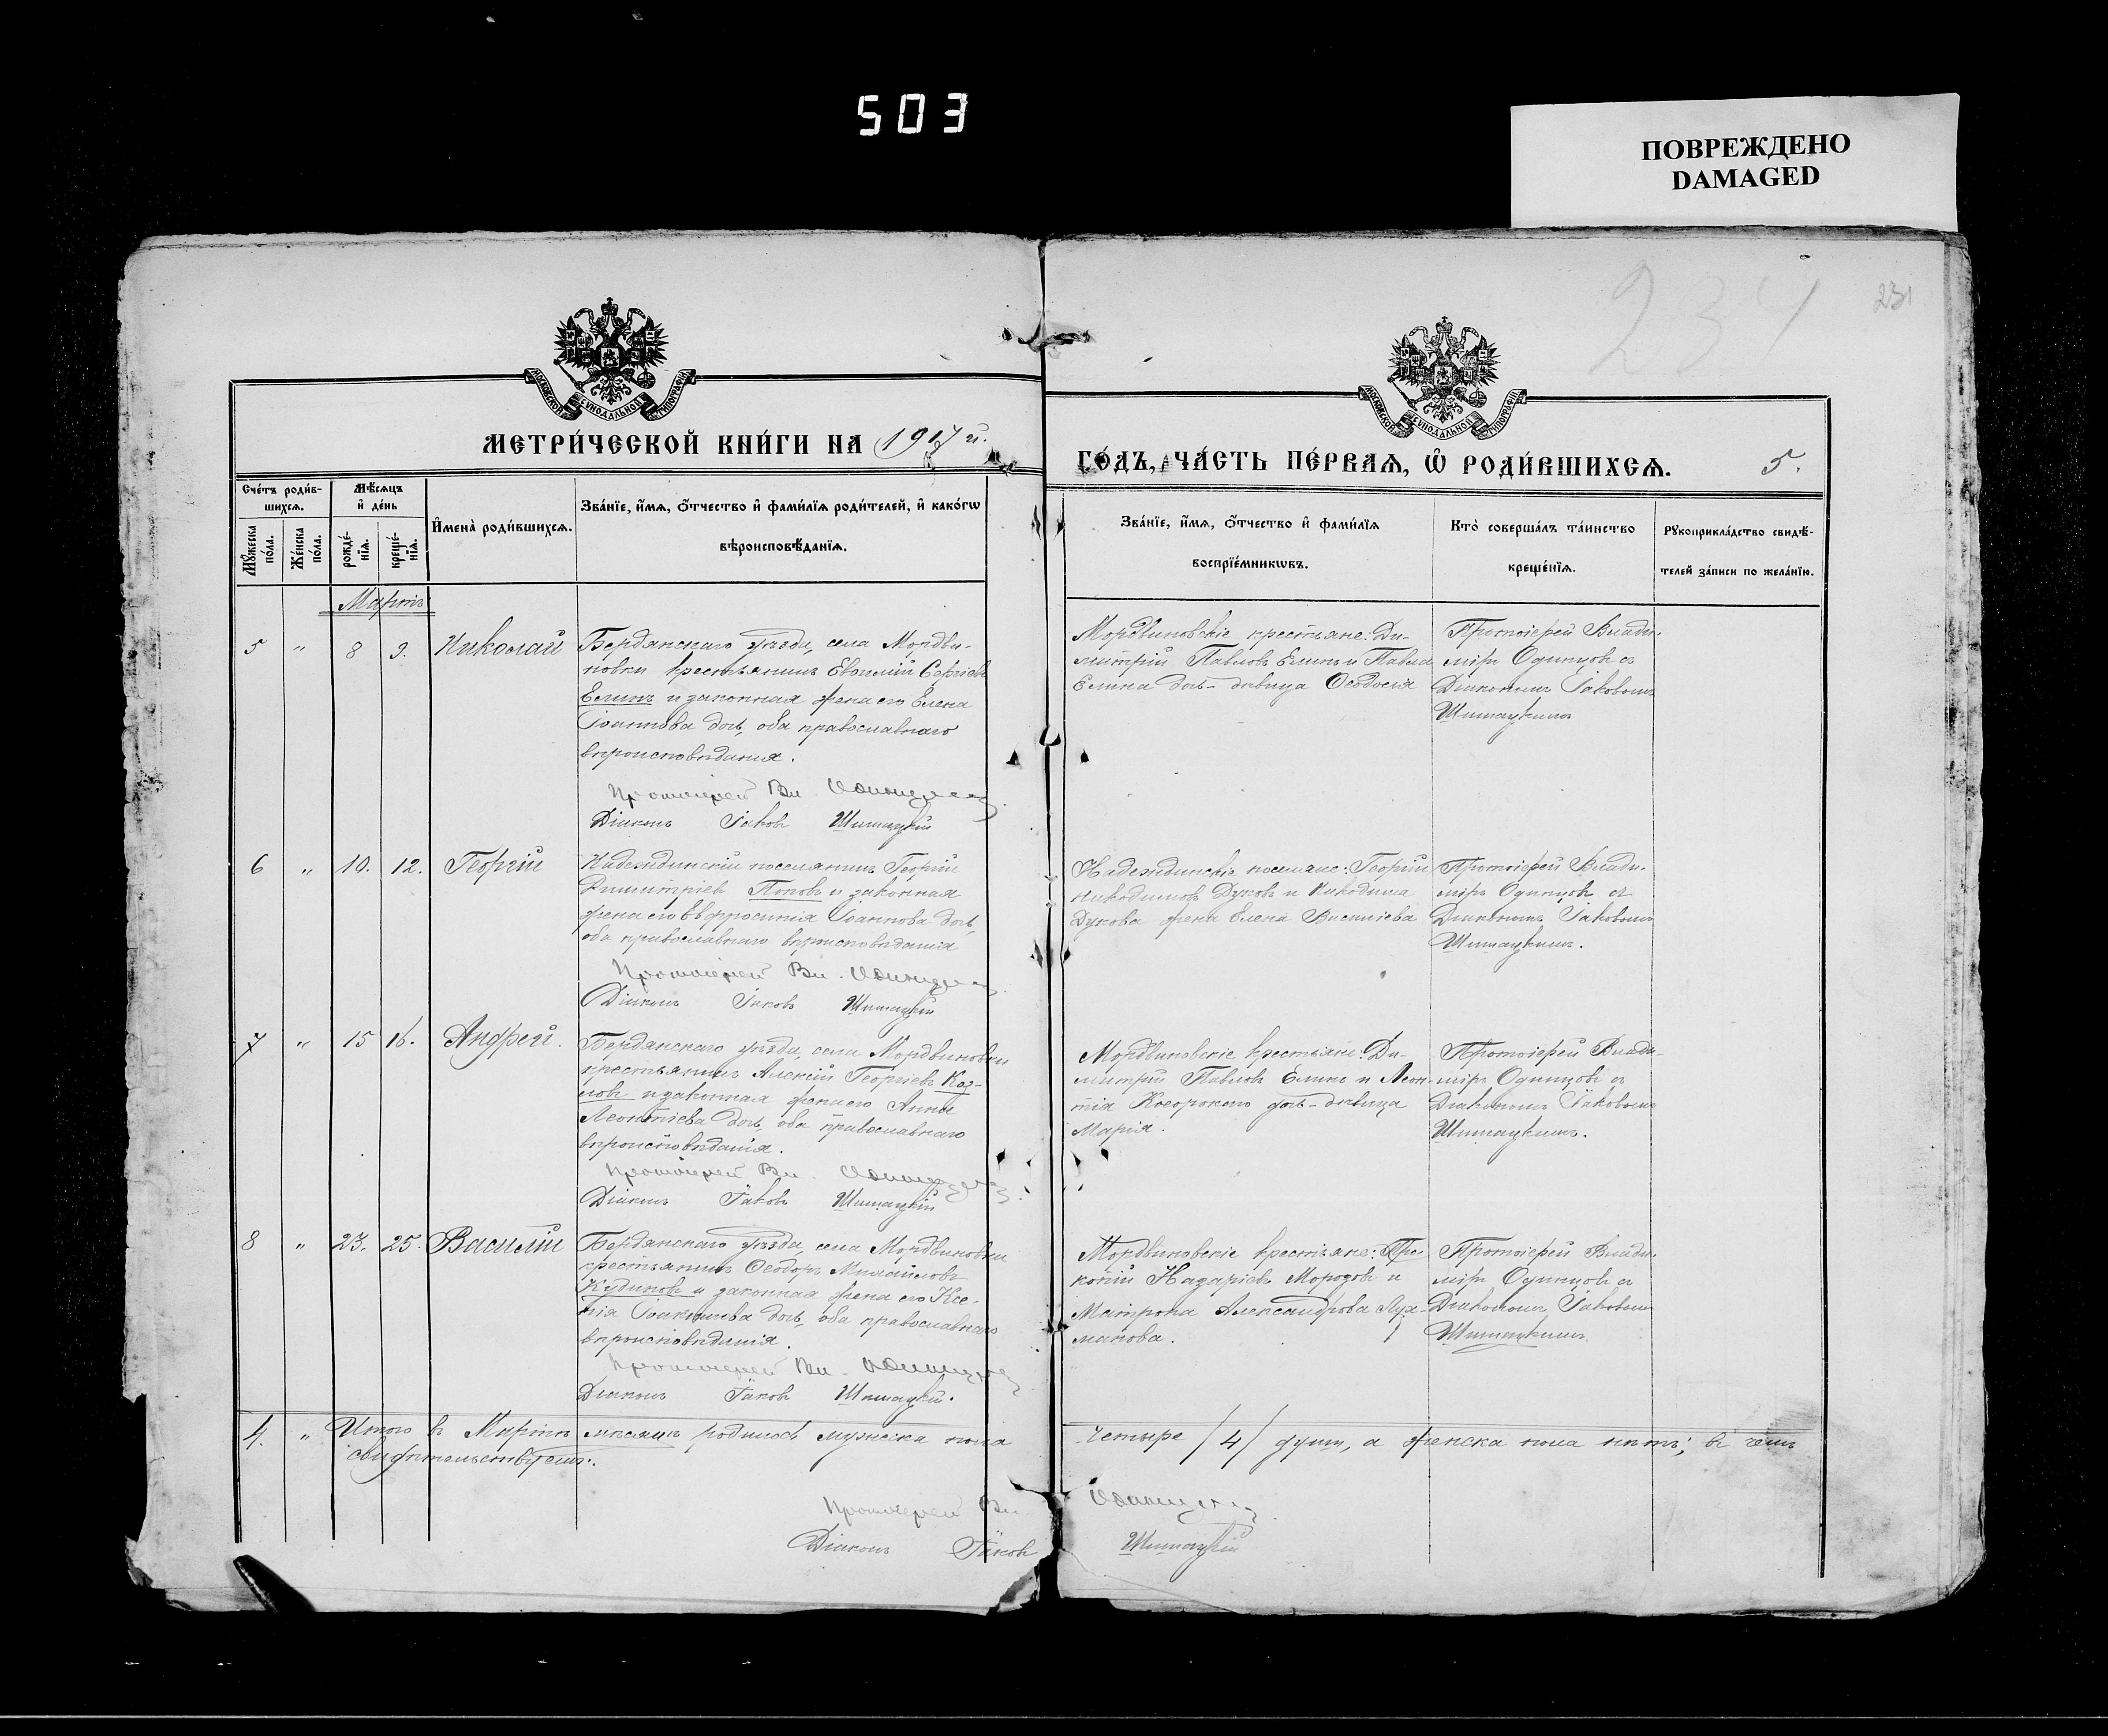 503
ПОВРЕЖДЕНО
DAMAGED
234
231
МОСКОВСКОЙ СѴНОДАЛЬНОЙ ТИПОГРАФІИ
МОСКОВСКОЙ СѴНОДАЛЬНОЙ ТИПОГРАФІИ
МЕТРИ́ЧЕСКОЙ КНИ́ГИ НА 1917 й.
ГО́ДЪ, ЧА́СТЬ ПЕ́РВАѦ, Ѡ҆ РОДИ́ВШИХСѦ. 5.
Сче́тъ роди́в-
шихсѧ.
Мꙋ́жеска по́ла.
Же́нска по́ла.
Мѣ́сѧцъ
и҆ де́нь
рожде́-
нїѧ.
креще́-
нїѧ.
И҆мена̀ роди́вшихсѧ.
Зва́нїе, и҆́мѧ, ѻ҆́тчество и҆ фами́лїѧ роди́телей, и҆ како́гѡ
вѣроисповѣ́данїѧ.
Зва́нїе, и҆́мѧ, ѻ҆́тчество и҆ фами́лїѧ
воспрїе́мникѡвъ.
Кто̀ соверша́лъ та́инство
креще́нїѧ.
Рꙋкоприкла́дство свидѣ́-
телей за́писи по жела́нїю.
Мартъ
5 " 8 9. Николай
Бердянскаго уѣзда, села Мордви-
новки крестьянинъ Евѳимій Сергіевъ
Елинъ и законная жена его Елена
Іоаннова дочь, оба православнаго
вѣроисповѣданія.
Протоіерей Вл. Одинцовъ
Діаконъ Іаковъ Шишацкій
Мордвиновскіе крестьяне: Ди-
митрій Павловъ Елинъ и Павла
Елина дочь-дѣвица Ѳеодосія
Протоіерей Влади-
міръ Одинцовъ съ
Діакономъ Іаковомъ
Шишацкимъ
6 " 10. 12. Георгій
Надеждинскій поселянинъ Георгій
Димитріевъ Поповъ и законная
жена его Евфросинія Іоаннова дочь,
оба православнаго вѣроисповѣданія
Протоіерей Вл. Одинцовъ
Діаконъ Іаковъ Шишацкій
Надеждинскіе поселяне: Георгій
Никодимовъ Дуковъ и Никодима
Дукова жена Елена Василіева
Протоіерей Влади-
міръ Одинцовъ съ
Діакономъ Іаковомъ
Шишацкимъ.
7 " 15 16. Андрей.
Бердянскаго уѣзда, села Мордвиновки
крестьянинъ Алексій Георгіевъ Коз-
ловъ и законная жена его Анна
Леонтіева дочь, оба православнаго
вѣроисповѣданія.
Протоіерей Вл. Одинцовъ
Діаконъ Іаковъ Шишацкій
Мордвиновскіе крестьяне: Ди-
митрій Павловъ Елинъ и Леон-
тія дочь-дѣвица
Марія.
Протоіерей Влади-
міръ Одинцовъ съ
Діакономъ Іаковомъ
Шишацкимъ.
8 " 23. 25. Василій
Бердянскаго уѣзда, села Мордвиновки
крестьянинъ Ѳеодоръ Михайловъ
Кудиновъ и законная жена его Ксе-
нія Іоакимова дочь, оба православнаго
вѣроисповѣданія.
Протоіерей Вл. Одинцовъ
Діаконъ Іаковъ Шишацкій.
Мордвиновскіе крестьяне: Про-
копій Назаріевъ Морозовъ и
Матрона Александрова
Протоіерей Влади-
міръ Одинцовъ съ
Діакономъ Іаковомъ
Шишацкимъ
4. " Итого въ Мартѣ мѣсяцѣ родилось мужска пола четыре /4/ душъ, а женска пола нѣтъ; въ чемъ
свидѣтельствуемъ:
Протоіерей Вл. Одинцовъ
Діаконъ Іаковъ Шишацкій